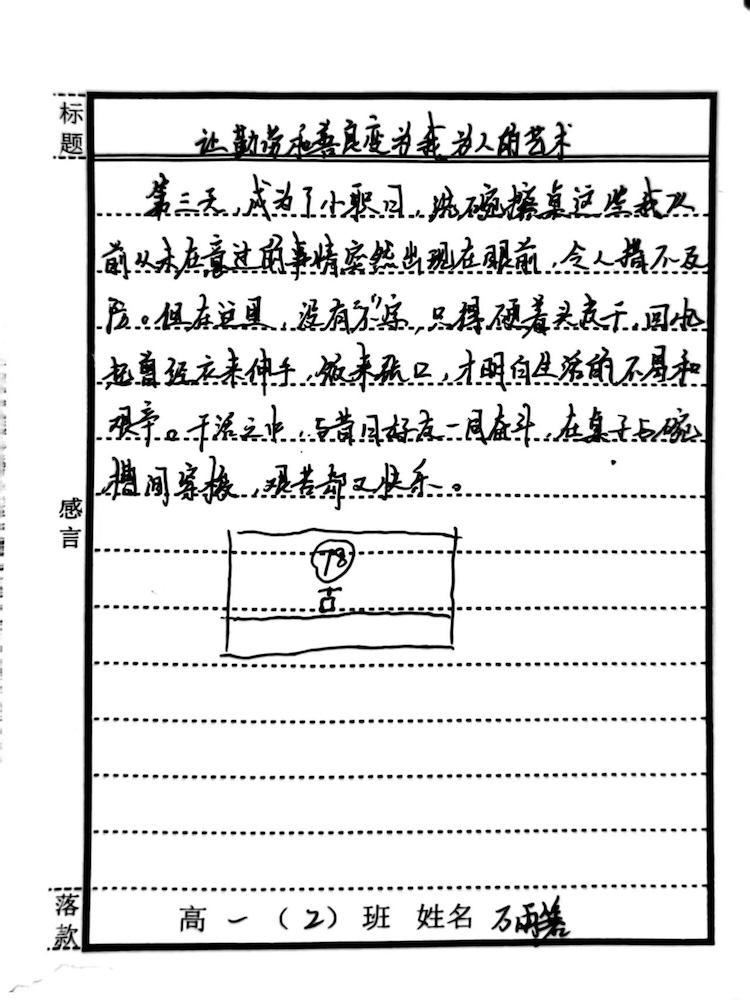 标题
让勤劳和善良变为我为人的艺术
第三天,成为了小职日,洗碗擦桌这些我从
前从未在意过的事情突然出现在眼前,令人措不及
防。但在这里,没有方家,只得硬着头皮干,回忆
起曾经衣来伸手,饭来张口,才明白生活的不易和
艰辛。干活之中,与昔日好友一同奋斗,在桌子与碗
槽间穿梭,艰苦却又快乐。
感言
78
古
落款
高一(2)班 姓名 万雨